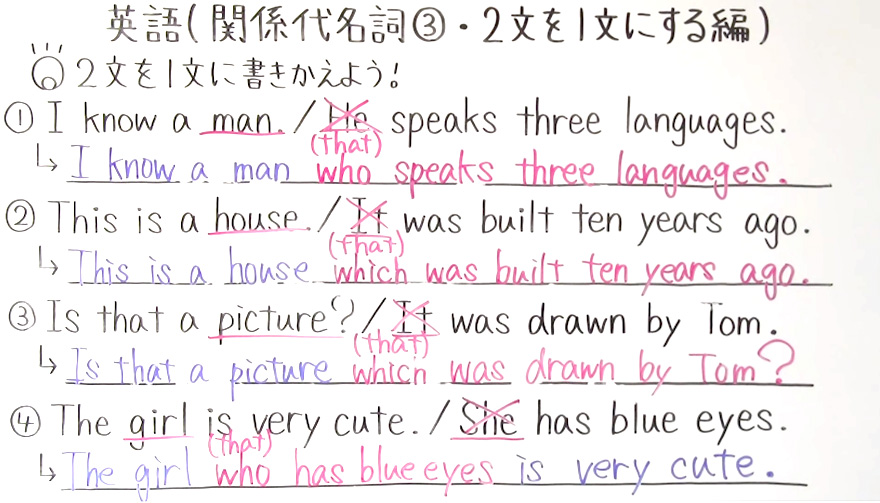 英語(関係代名詞③・2文を1文にする編)
2文を1文に書きかえよう!
① I know a man. / He speaks three languages.
(that)
↳ I know a man who speaks three languages.
② This is a house. / It was built ten years ago.
(that)
↳ This is a house which was built ten years ago.
③ Is that a picture? / It was drawn by Tom.
(that)
↳ Is that a picture which was drawn by Tom?
④ The girl is very cute. / She has blue eyes.
(that)
↳ The girl who has blue eyes is very cute.